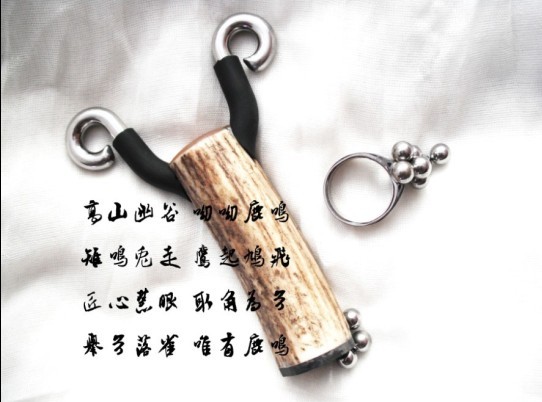 高山幽谷 呦呦鹿鸣
雉鸣兔走 鹰起鸠飛
匠心慧眼 取角为弓
举弓落雀 唯有鹿鸣